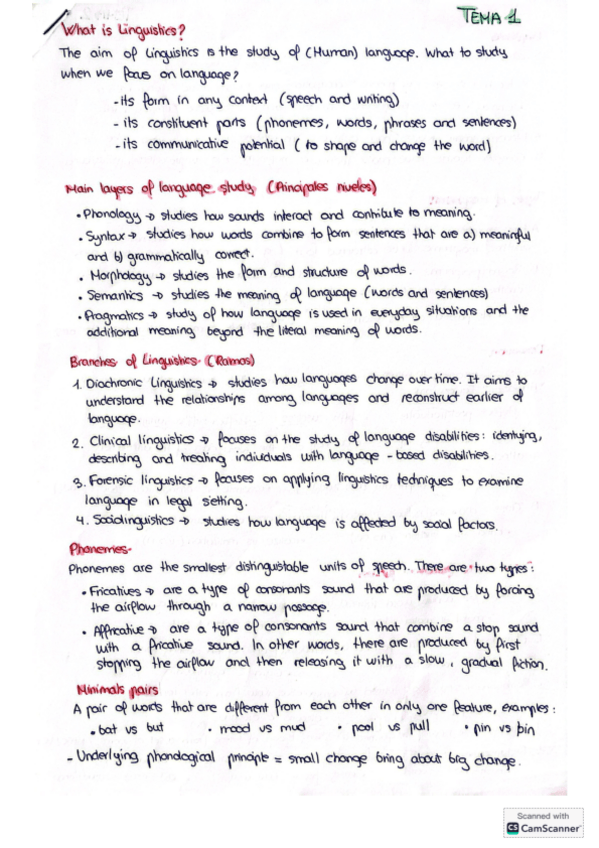 TEMA 1
What is Linguistics?
The aim of Linguistics is the study of (Human) language. What to study
when we focus on language?
-its form in any context (speech and writing)
- its constituent parts (phonemes, words, phrases and sentences)
- its communicative potential ( to shape and change the word)
Main layers of language study (Principales niveles)
• Phonology → studies how sounds interact and contribute to meaning.
• Syntax → studies how words combine to form sentences that are a) meaningful
and b) grammatically correct.
• Morphology → studies the form and structure of words.
• Semantics → studies the meaning of language (words and sentences)
• Pragmatics → study of how language is used in everyday situations and the
additional meaning beyond the literal meaning of words.
Branches of Linguistics. (Ramas)
1. Diachronic Linguistics → studies how languages change over time. It aims to
understand the relationships among languages and reconstruct earlier of
language.
2. Clinical linguistics → focuses on the study of language disabilities: identying,
describing and treating individuals with language - based disabilities.
3. Forensic linguistics → focuses on applying linguistics techniques to examine
language in legal setting.
4. Sociolinguistics → studies how language is affected by social factors.
Phonemes.
Phonemes are the smallest distinguistable units of speech. There are two types:
• Fricatives → are a type of consonants sound that are produced by forcing
the airflow through a narrow passage.
• Affricative → are a type of consonants sound that combine a stop sound
with a fricative sound. In other words, there are produced by first
stopping the airflow and then releasing it with a slow, gradual fiction.
Minimals pairs
A pair of words that are different from each other in only one feature, examples:
• bat vs but • mood vs mud • pool vs pull • pin vs bin
- Underlying phonological principle = small change bring about big change.
Scanned with
CS CamScanner